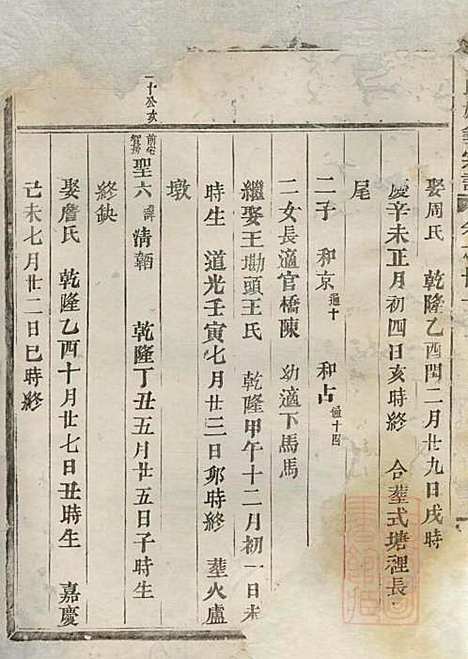 娶周氏 乾隆乙酉閏二月廿九日戌時
慶辛未正月初四日亥時終 合葬式塘裡長
尾
二子 和京通十 和占通十四
二女長適官橋陳 幼適下馬馬
繼娶王塘頭王氏 乾隆甲午十二月初一日未
時生 道光壬寅七月廿三日卯時終 葬火盧
墩
十公亥
聖六 諱清韜 乾隆丁丑五月廿五日子時生
終缺
娶詹氏 乾隆乙酉十月廿七日丑時生 嘉慶
己未七月廿二日巳時終